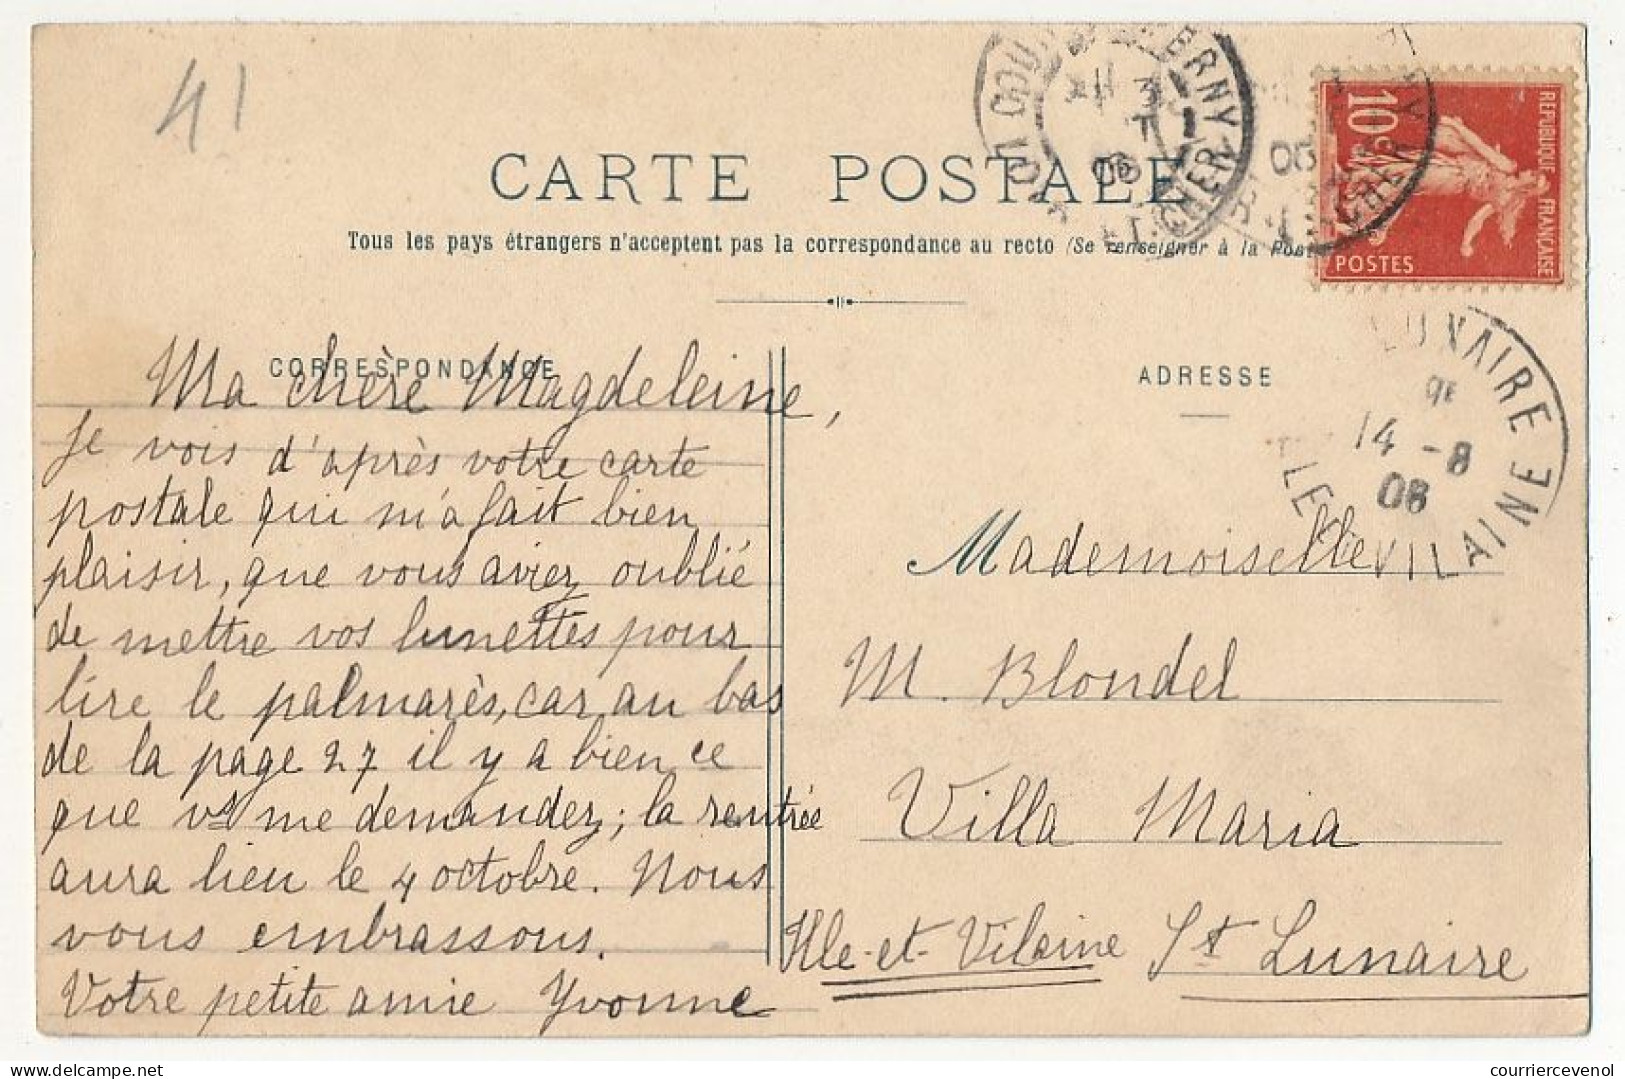 41
CARTE POSTALE
Tous les pays étrangers n'acceptent pas la correspondance au recto (Se renseigner à la Poste
REPUBLIQUE FRANÇAISE
10c
POSTES
CHER
06
CORRESPONDANCE
ADRESSE
LUNAIRE
14 -8
08
ILLE VILAINE
Ma chère Magdeleine,
Je vois d'après votre carte
postale qui m'a fait bien
plaisir, que vous aviez oublié
de mettre vos lunettes pour
lire le palmarès, car au bas
de la page 27 il y a bien ce
que vs me demandez; la rentrée
aura lieu le 4 octobre. Nous
vous embrassons.
Votre petite amie Yvonne
Mademoiselle
M. Blondel
Villa Maria
Ille-et-Vilaine St Lunaire
courriercevenol